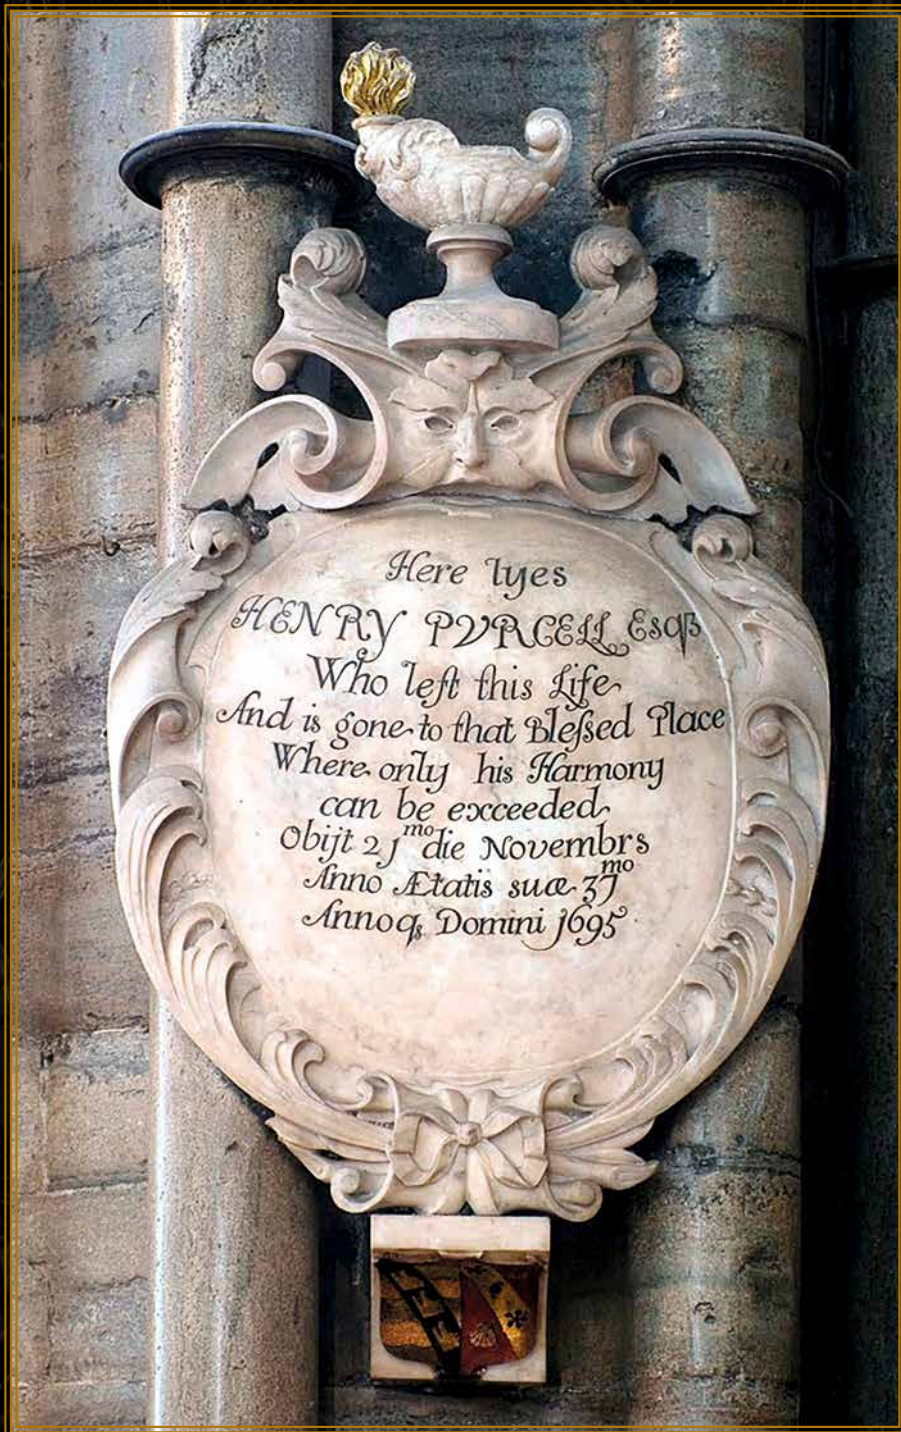 Here lyes
HENRY PVRCELL Esqꝫ
Who left this Life
And is gone to that Bleſsed Place
Where only his Harmony
can be exceeded
Obijt 2jᵐᵒ die Novembrs
Anno Ætatis suæ 37ᵐᵒ
Annoqꝫ Domini j695